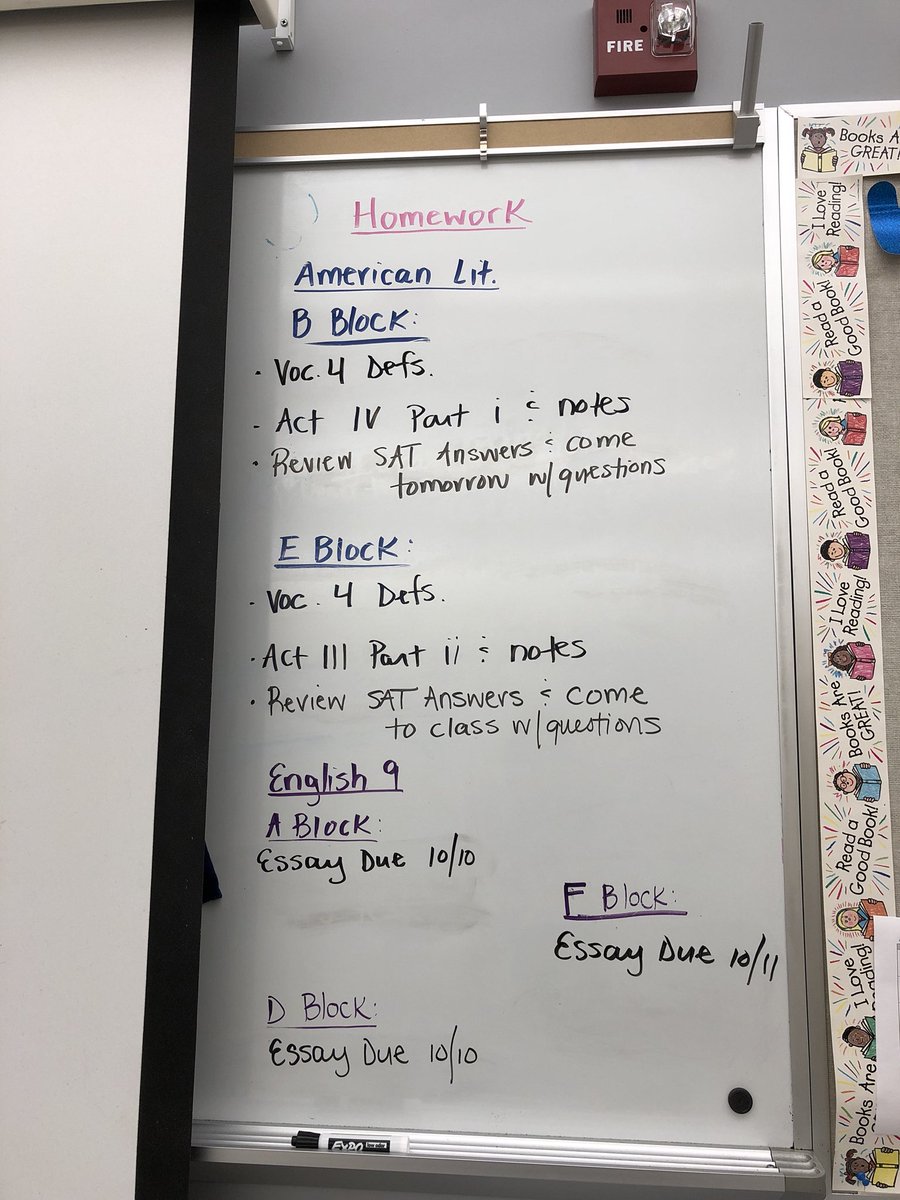 FIRE
Homework
American Lit.
B Block:
· Voc. 4 Defs.
· Act IV Part i & notes
· Review SAT Answers & come
tomorrow w/questions
E Block:
· Voc. 4 Defs.
· Act III Part ii & notes
· Review SAT Answers & come
to class w/questions
English 9
A Block:
Essay Due 10/10
F Block:
Essay Due 10/11
D Block:
Essay Due 10/10
EXPO
Books A
GREAT!
I Love
Reading!
Read a
Good Book!
Read a
Good Book!
I Love
Reading!
Books Are
GREAT!
Read a
Good Book!
I Love
Reading!
Books Are